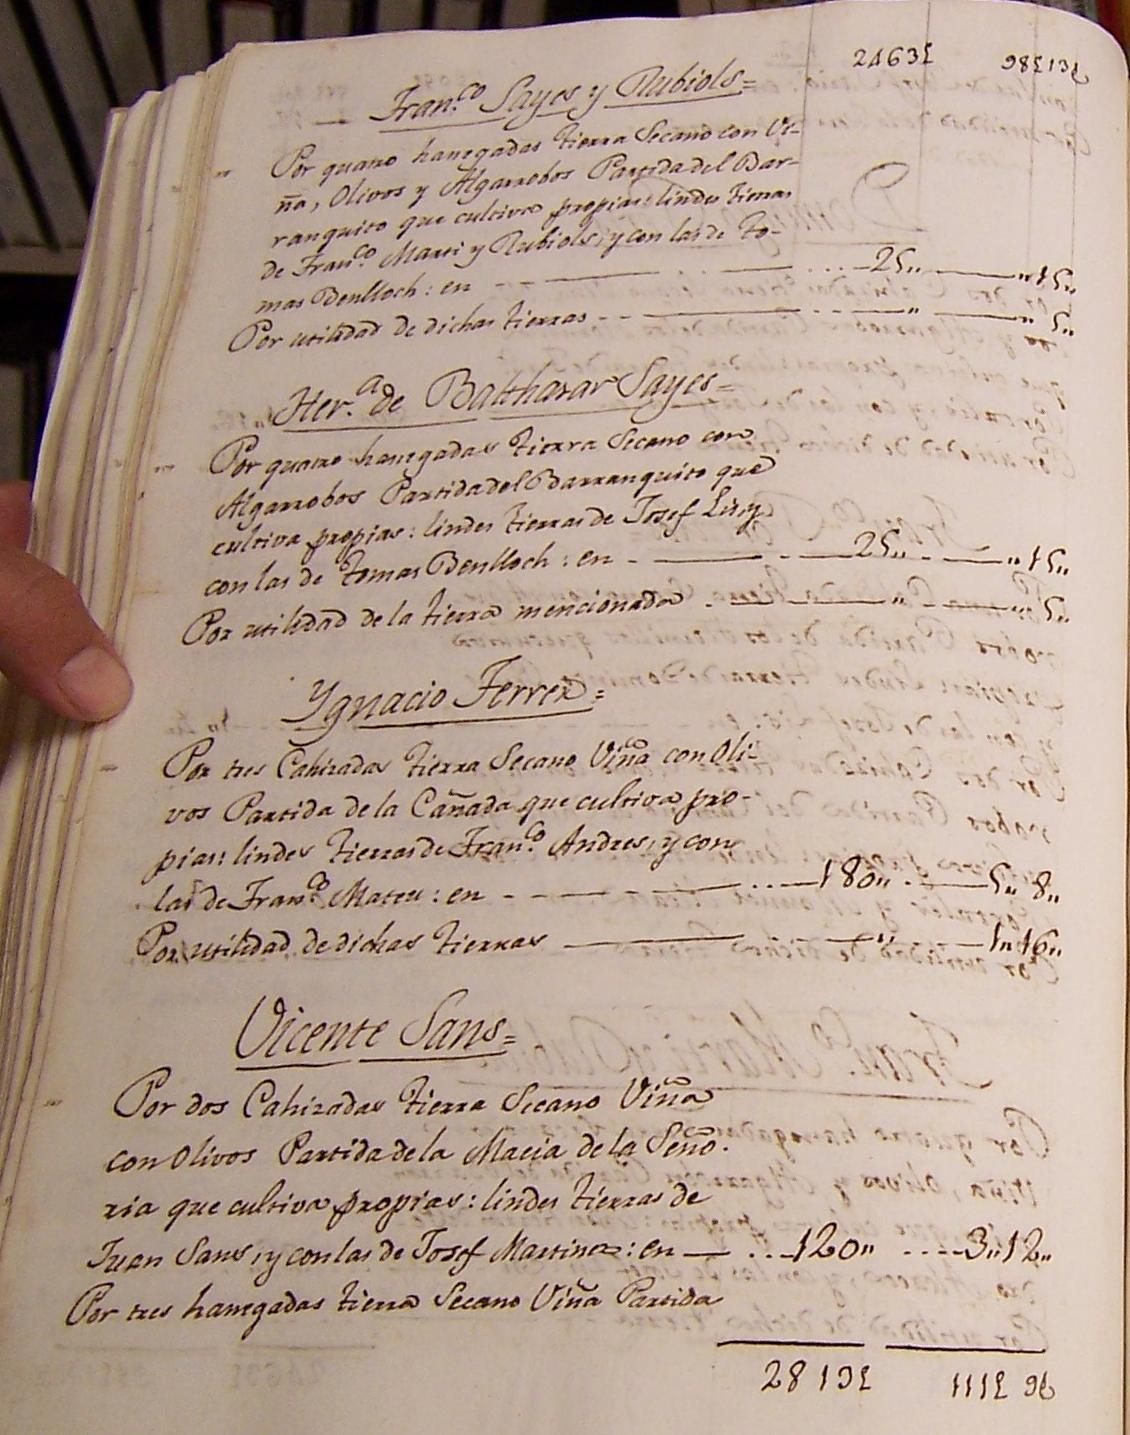 2463£ 98£13ẟ
Fran.co Sayes y Rubiols=
Por quatro hanegadas tierra Secano con Vi-
ña, Olivos y Algarrobos Partida del Bar-
ranquito que cultiva propias: lindes tierras
de Fran.co Marti y Rubiols, y con las de To-
mas Benlloch: en 25„ „15„
Por utilidad de dichas tierras „ „5„
Her.a de Balthazar Sayes=
Por quatro hanegadas tierra Secano con
Algarrobos Partida del Barranquito que
cultiva propias: lindes tierras de Josef Liri y
con las de Tomas Benlloch: en 25„ „15„
Por utilidad de la tierra mencionada „ „5„
Ygnacio Ferrer=
Por tres Cahizadas tierra Secano Viña con Oli-
vos Partida de la Cañada que cultiva pro-
pias: lindes tierras de Fran.co Andres, y con
las de Fran.co Mateu: en 180„ 5„8„
Por utilidad de dichas tierras „ 1„16„
Vicente Sans=
Por dos Cahizadas tierra Secano Viña
con Olivos Partida de la Macia de la Seño-
ria que cultiva propias: lindes tierras de
Juan Sans, y con las de Josef Martinez: en 120„ 3„12„
Por tres hanegadas tierra Secano Viña Partida
2813£ 111£9ẟ